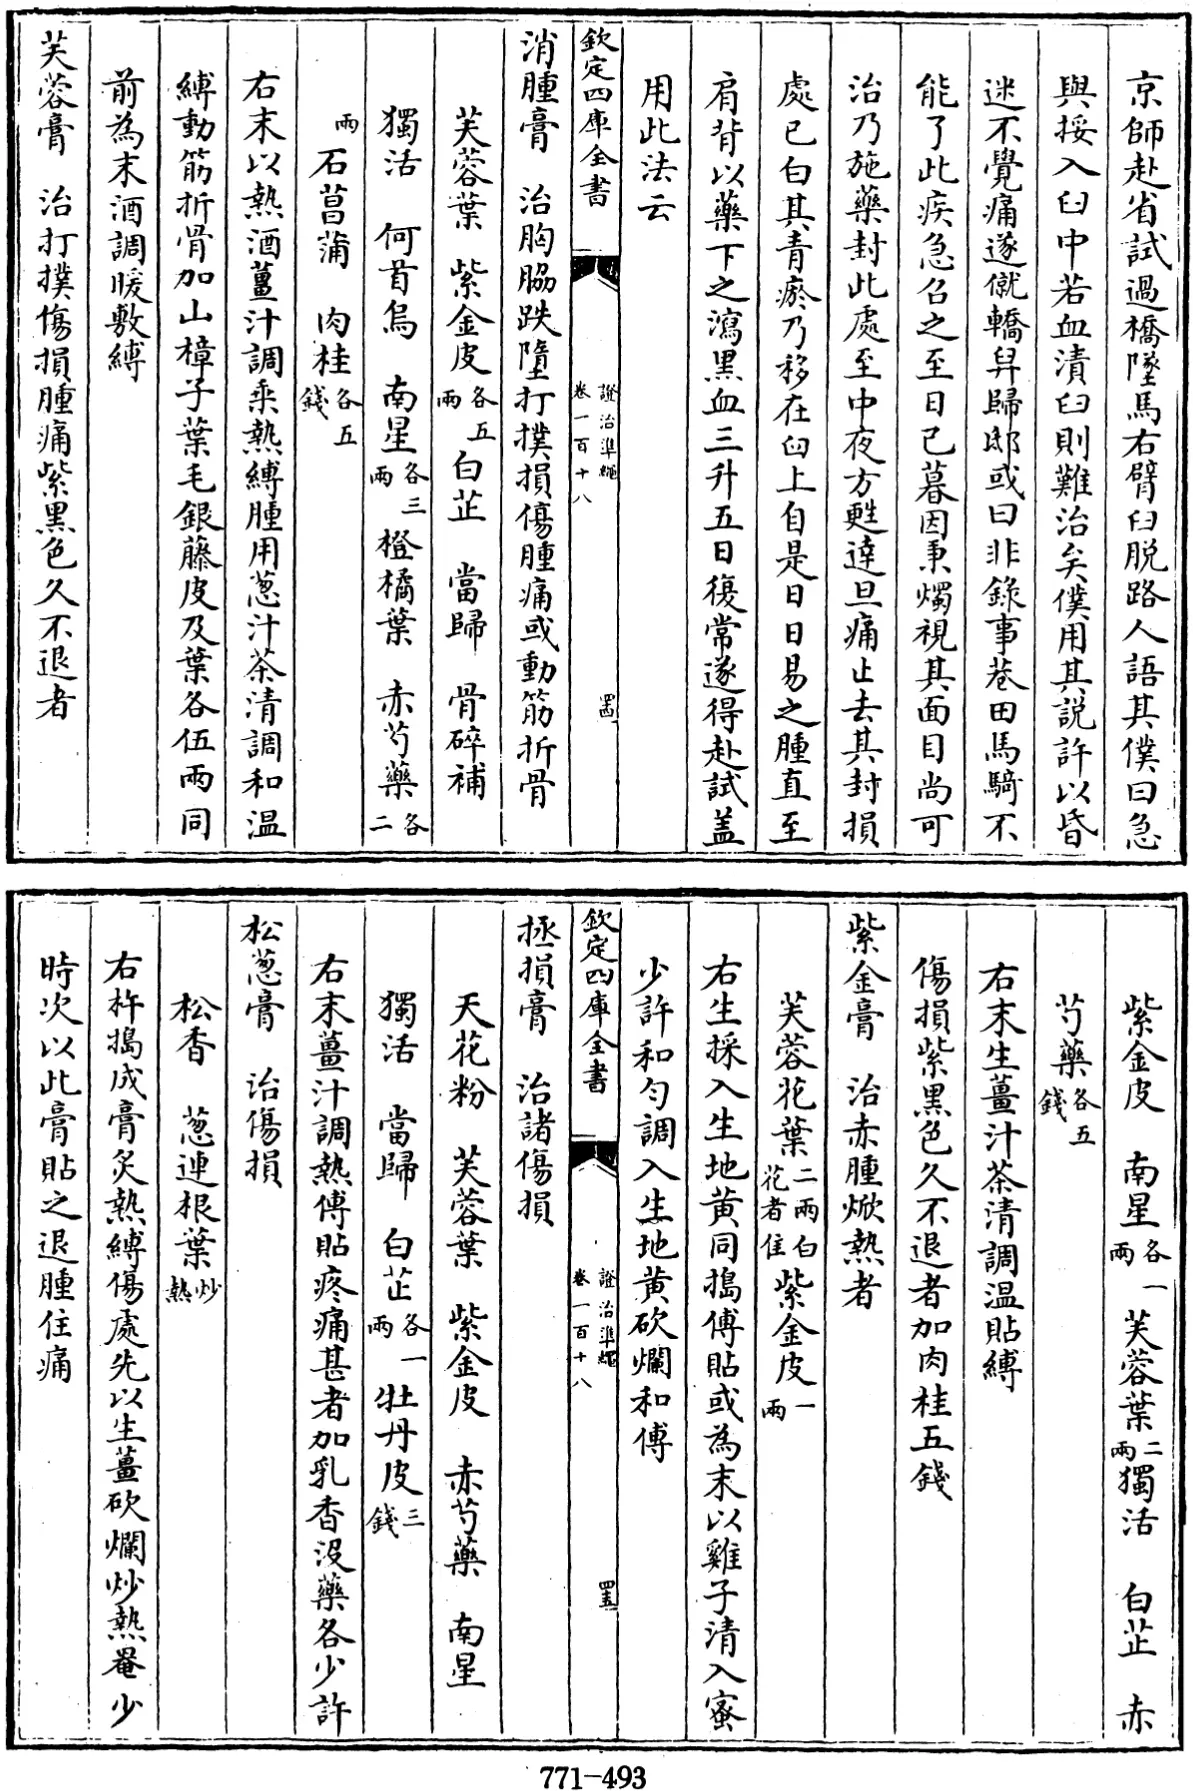 京師赴省試過橋墜馬右臂臼脱路人語其僕曰急
與挼入臼中若血漬臼則難治矣僕用其説許以昏
迷不覺痛遂僦轎舁歸邸或曰非錄事巷田馬騎不
能了此疾急召之至日已暮因秉燭視其面目尚可
治乃施藥封此處至中夜方甦達旦痛止去其封損
處已白其青瘀乃移在臼上自是日日易之腫直至
肩背以藥下之瀉黑血三升五日復常遂得赴試盖
用此法云
欽定四庫全書 證治準繩 卷一百十八 四
消腫膏 治胸脇跌墮打撲損傷腫痛或動筋折骨
芙蓉葉 紫金皮各五兩 白芷 當歸 骨碎補
獨活 何首烏 南星各三兩 橙橘葉 赤芍藥各二
兩 石菖蒲 肉桂各五錢
右末以熱酒薑汁調乘熱縛腫用葱汁茶清調和温
縛動筋折骨加山樟子葉毛銀藤皮及葉各伍兩同
前為末酒調暖敷縛
芙蓉膏 治打撲傷損腫痛紫黑色久不退者
紫金皮 南星各一兩 芙蓉葉二兩 獨活 白芷 赤
芍藥各五錢
右末生薑汁茶清調温貼縛
傷損紫黑色久不退者加肉桂五錢
紫金膏 治赤腫焮熱者
芙蓉花葉二兩白花者佳 紫金皮一兩
右生採入生地黄同搗傅貼或為末以雞子清入蜜
少許和勻調入生地黄砍爛和傅
欽定四庫全書 證治準繩 卷一百十八
拯損膏 治諸傷損
天花粉 芙蓉葉 紫金皮 赤芍藥 南星
獨活 當歸 白芷各一兩 牡丹皮三錢
右末薑汁調熱傅貼疼痛甚者加乳香没藥各少許
松葱膏 治傷損
松香 葱連根葉炒熱
右杵搗成膏炙熱縛傷處先以生薑砍爛炒熱罨少
時次以此膏貼之退腫住痛
771-493